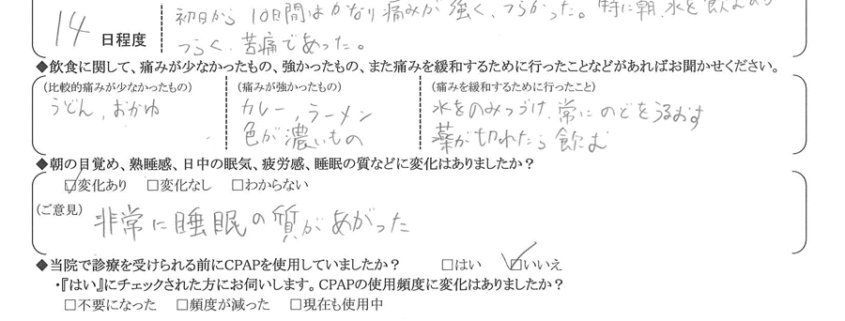 初日から10日間はかなり痛みが強く、つらかった。特に朝、水を飲むのが
14 日程度 つらく、苦痛であった。
◆飲食に関して、痛みが少なかったもの、強かったもの、また痛みを緩和するために行ったことなどがあればお聞かせください。
(比較的痛みが少なかったもの) (痛みが強かったもの) (痛みを緩和するために行ったこと)
うどん、おかゆ カレー、ラーメン 水をのみつづけ、常にのどをうるおす
色が濃いもの 薬が切れたら飲む
◆朝の目覚め、熟睡感、日中の眠気、疲労感、睡眠の質などに変化はありましたか？
☑変化あり □変化なし □わからない
(ご意見) 非常に睡眠の質があがった
◆当院で診療を受けられる前にCPAPを使用していましたか？ □はい ☑いいえ
・『はい』にチェックされた方にお伺いします。CPAPの使用頻度に変化はありましたか？
□不要になった □頻度が減った □現在も使用中